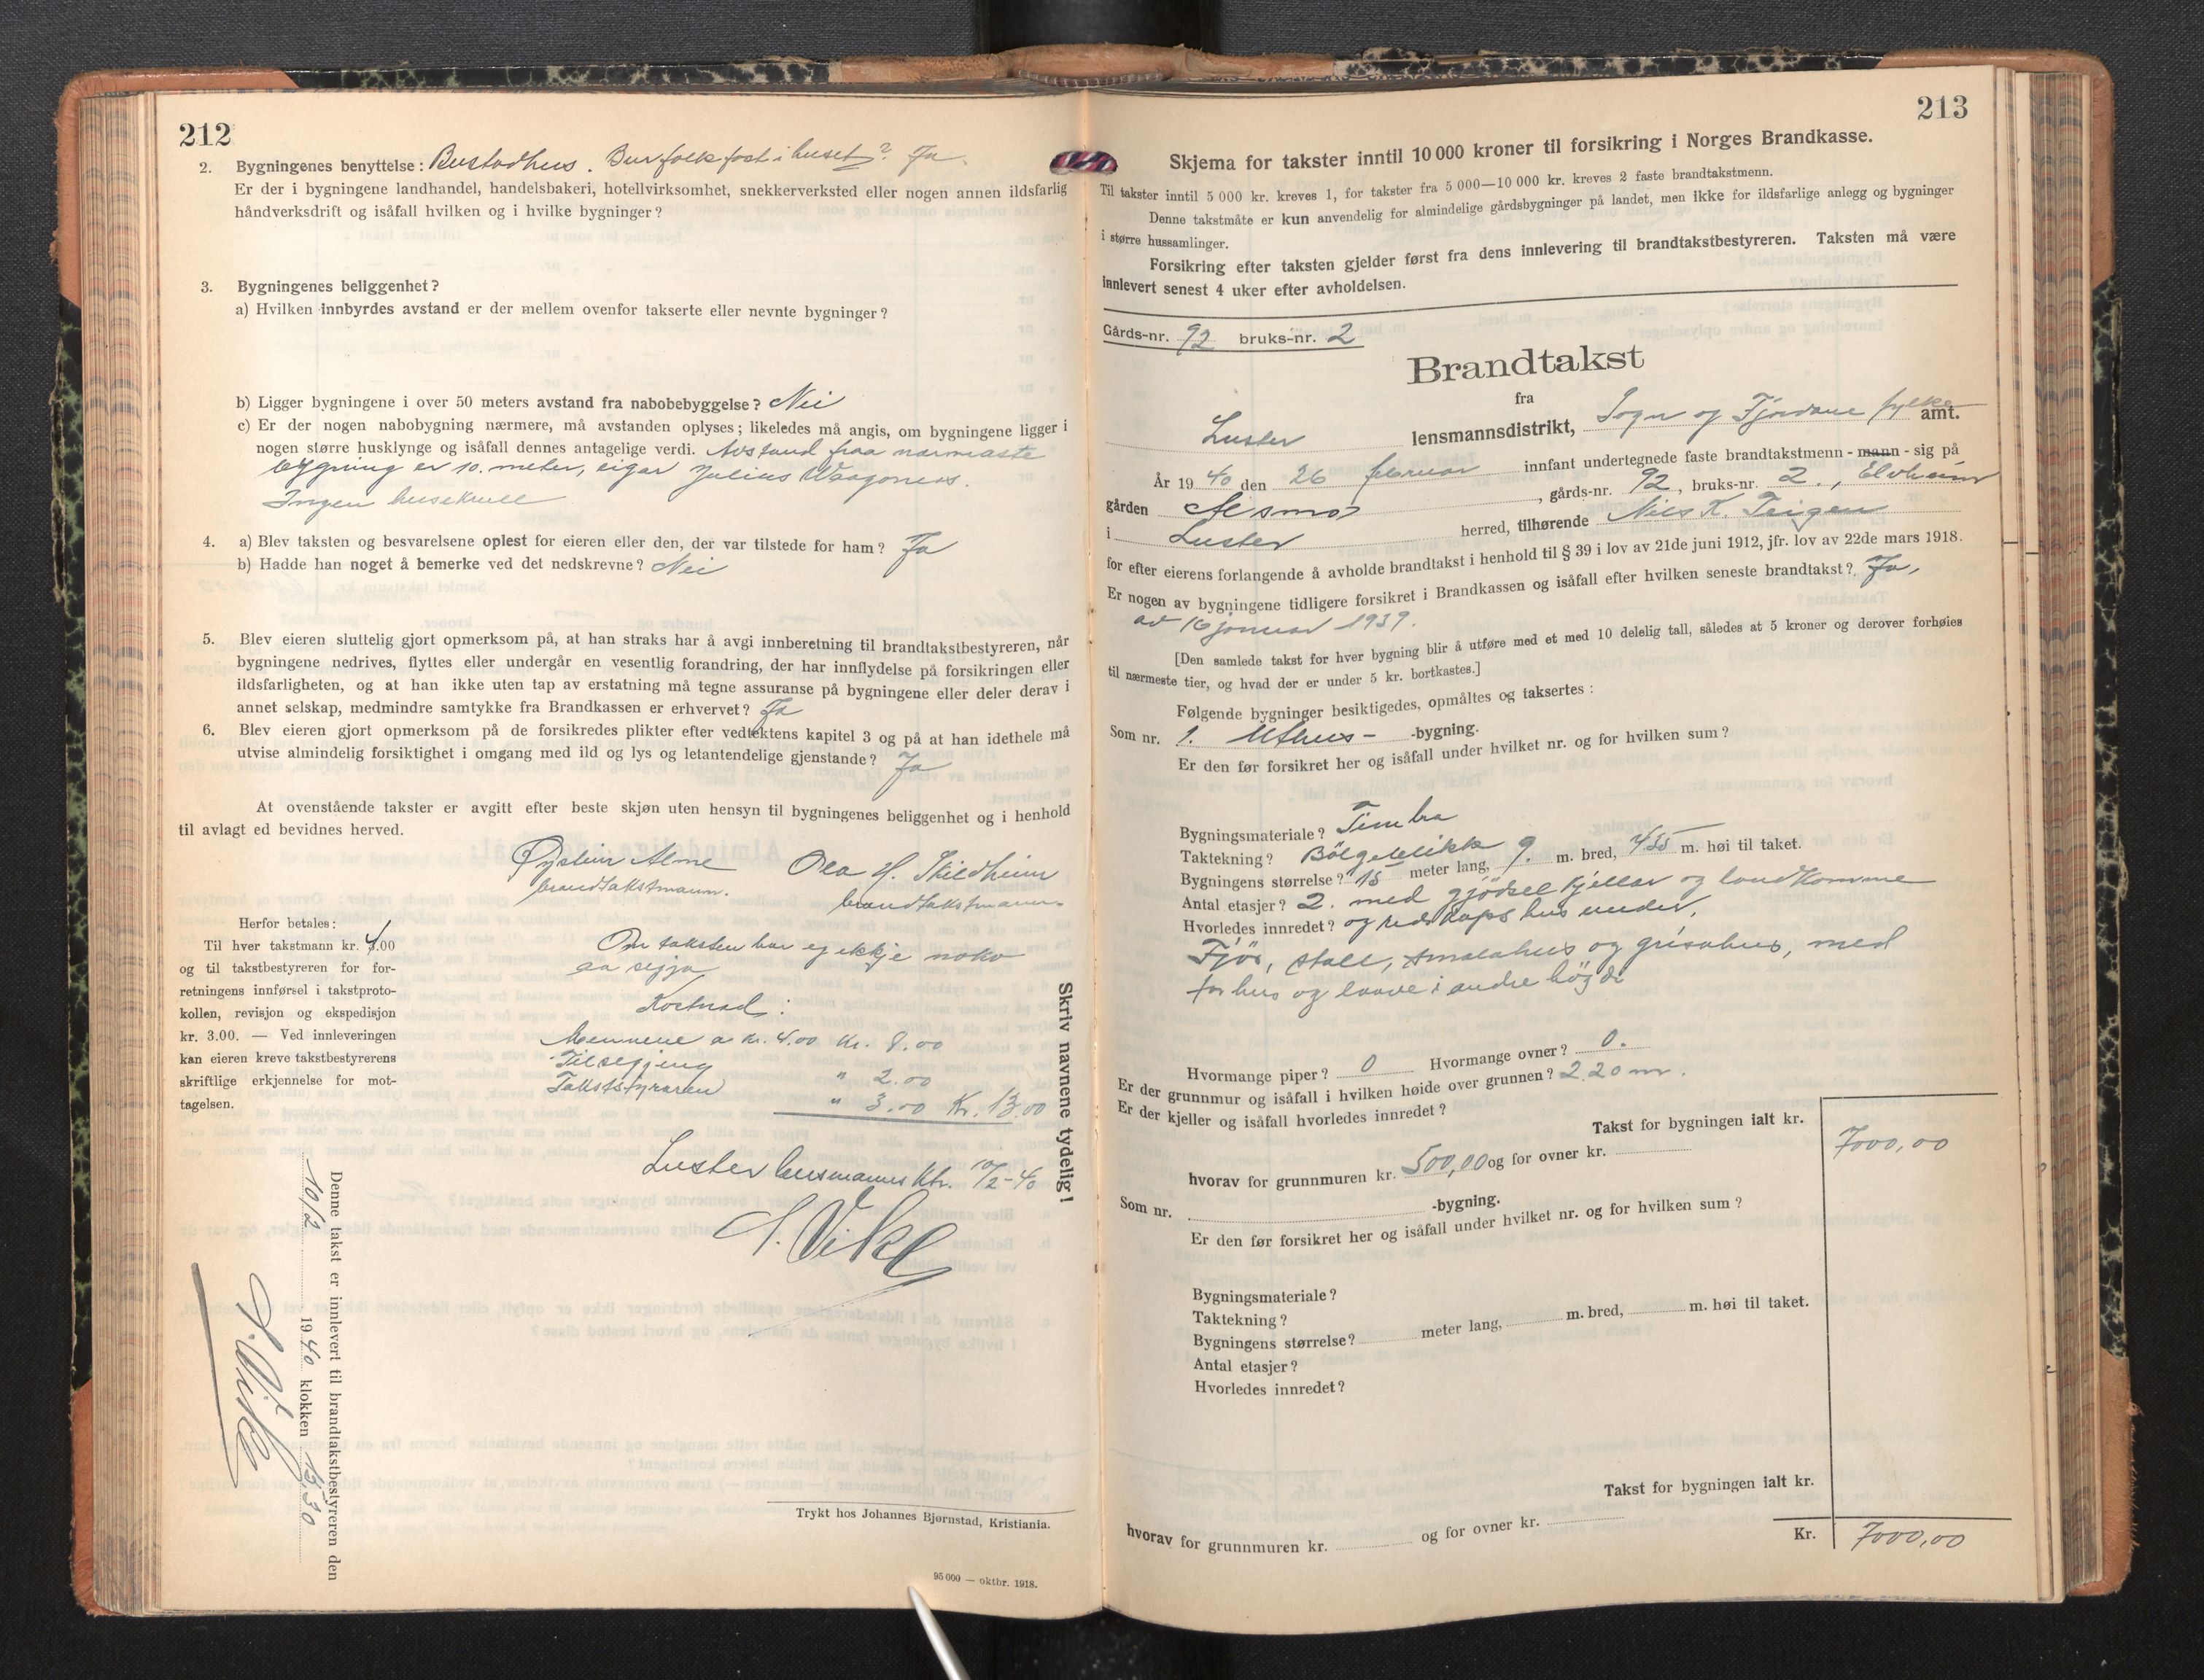 212
2. Bygningenes benyttelse: Bustadhus. Bur folk fast i huset? Ja.
Er der i bygningene landhandel, handelsbakeri, hotellvirksomhet, snekkerverksted eller nogen annen ildsfarlig
håndverksdrift og isåfall hvilken og i hvilke bygninger?
3. Bygningenes beliggenhet?
a) Hvilken innbyrdes avstand er der mellem ovenfor takserte eller nevnte bygninger?
b) Ligger bygningene i over 50 meters avstand fra nabobebyggelse? Nei
c) Er der nogen nabobygning nærmere, må avstanden oplyses; likeledes må angis, om bygningene ligger i
nogen større husklynge og isåfall dennes antagelige verdi. Avstand fraa nærmaste
bygning er 10. meter, eigar Julius
Ingen
4. a) Blev taksten og besvarelsene oplest for eieren eller den, der var tilstede for ham? Ja
b) Hadde han noget å bemerke ved det nedskrevne? Nei
5. Blev eieren sluttelig gjort opmerksom på, at han straks har å avgi innberetning til brandtakstbestyreren, når
bygningene nedrives, flyttes eller undergår en vesentlig forandring, der har innflydelse på forsikringen eller
ildsfarligheten, og at han ikke uten tap av erstatning må tegne assuranse på bygningene eller deler derav i
annet selskap, medmindre samtykke fra Brandkassen er erhvervet? Ja
6. Blev eieren gjort opmerksom på de forsikredes plikter efter vedtektens kapitel 3 og på at han idethele må
utvise almindelig forsiktighet i omgang med ild og lys og letantendelige gjenstande? Ja
At ovenstående takster er avgitt efter beste skjøn uten hensyn til bygningenes beliggenhet og i henhold
til avlagt ed bevidnes herved.
Øystein Alme Ola H. Skildheim
brandtakstmann. brandtakstmann.
Herfor betales:
Til hver takstmann kr. 4.00
og til takstbestyreren for for-
retningens innførsel i takstproto-
kollen, revisjon og ekspedisjon
kr. 3.00. — Ved innleveringen
kan eieren kreve takstbestyrerens
skriftlige erkjennelse for mot-
tagelsen.
Om taksten har eg ikkje noko
aa segja
Kostnad:
Mennene a kr. 4.00 Kr. 8.00
Tilsegjing " 2.00
Takststyraren " 3.00 Kr. 13.00
Luster lensmannsktr. 10/2-40
S. Vikl
Skriv navnene tydelig!
Denne takst er innlevert til brandtakstbestyreren den
10/2 1940 klokken 15,30
S. Vikl
Trykt hos Johannes Bjørnstad, Kristiania.
95 000 — oktbr. 1918.
213
Skjema for takster inntil 10 000 kroner til forsikring i Norges Brandkasse.
Til takster inntil 5 000 kr. kreves 1, for takster fra 5 000—10 000 kr. kreves 2 faste brandtakstmenn.
Denne takstmåte er kun anvendelig for almindelige gårdsbygninger på landet, men ikke for ildsfarlige anlegg og bygninger
i større hussamlinger.
Forsikring efter taksten gjelder først fra dens innlevering til brandtakstbestyreren. Taksten må være
innlevert senest 4 uker efter avholdelsen.
Gårds-nr. 92 bruks-nr. 2
Brandtakst
fra
Luster lensmannsdistrikt, Sogn og Fjordane fylke amt.
År 1940 den 26 februar innfant undertegnede faste brandtakstmenn - mann - sig på
gården Alsmo, gårds-nr. 92, bruks-nr. 2., Elvheim
i Luster herred, tilhørende Nils K. Teigen
for efter eierens forlangende å avholde brandtakst i henhold til § 39 i lov av 21de juni 1912, jfr. lov av 22de mars 1918.
Er nogen av bygningene tidligere forsikret i Brandkassen og isåfall efter hvilken seneste brandtakst? Ja,
av 16 januar 1939.
[Den samlede takst for hver bygning blir å utføre med et med 10 delelig tall, således at 5 kroner og derover forhøies
til nærmeste tier, og hvad der er under 5 kr. bortkastes.]
Følgende bygninger besiktigedes, opmåltes og taksertes:
Som nr. 1. Uthus- -bygning.
Er den før forsikret her og isåfall under hvilket nr. og for hvilken sum?
Bygningsmateriale? Timbra
Taktekning? Bölgeblikk
Bygningens størrelse? 15 meter lang, 9. m. bred, 4,55 m. høi til taket.
Antal etasjer? 2. med gjödselkjellar og landkomme
Hvorledes innredet? og redskapshus under.
Fjös, stall, smalahus og grisahus, med
forhus og laave i andre högde
Hvormange piper? 0 Hvormange ovner? 0.
Er der grunnmur og isåfall i hvilken høide over grunnen? 2,20 m.
Er der kjeller og isåfall hvorledes innredet?
Takst for bygningen ialt kr. 7000,00
hvorav for grunnmuren kr. 500,00 og for ovner kr.
Som nr. -bygning.
Er den før forsikret her og isåfall under hvilket nr. og for hvilken sum?
Bygningsmateriale?
Taktekning?
Bygningens størrelse? meter lang, m. bred, m. høi til taket.
Antal etasjer?
Hvorledes innredet?
Takst for bygningen ialt kr.
hvorav for grunnmuren kr. og for ovner kr.
Kr. 7000,00